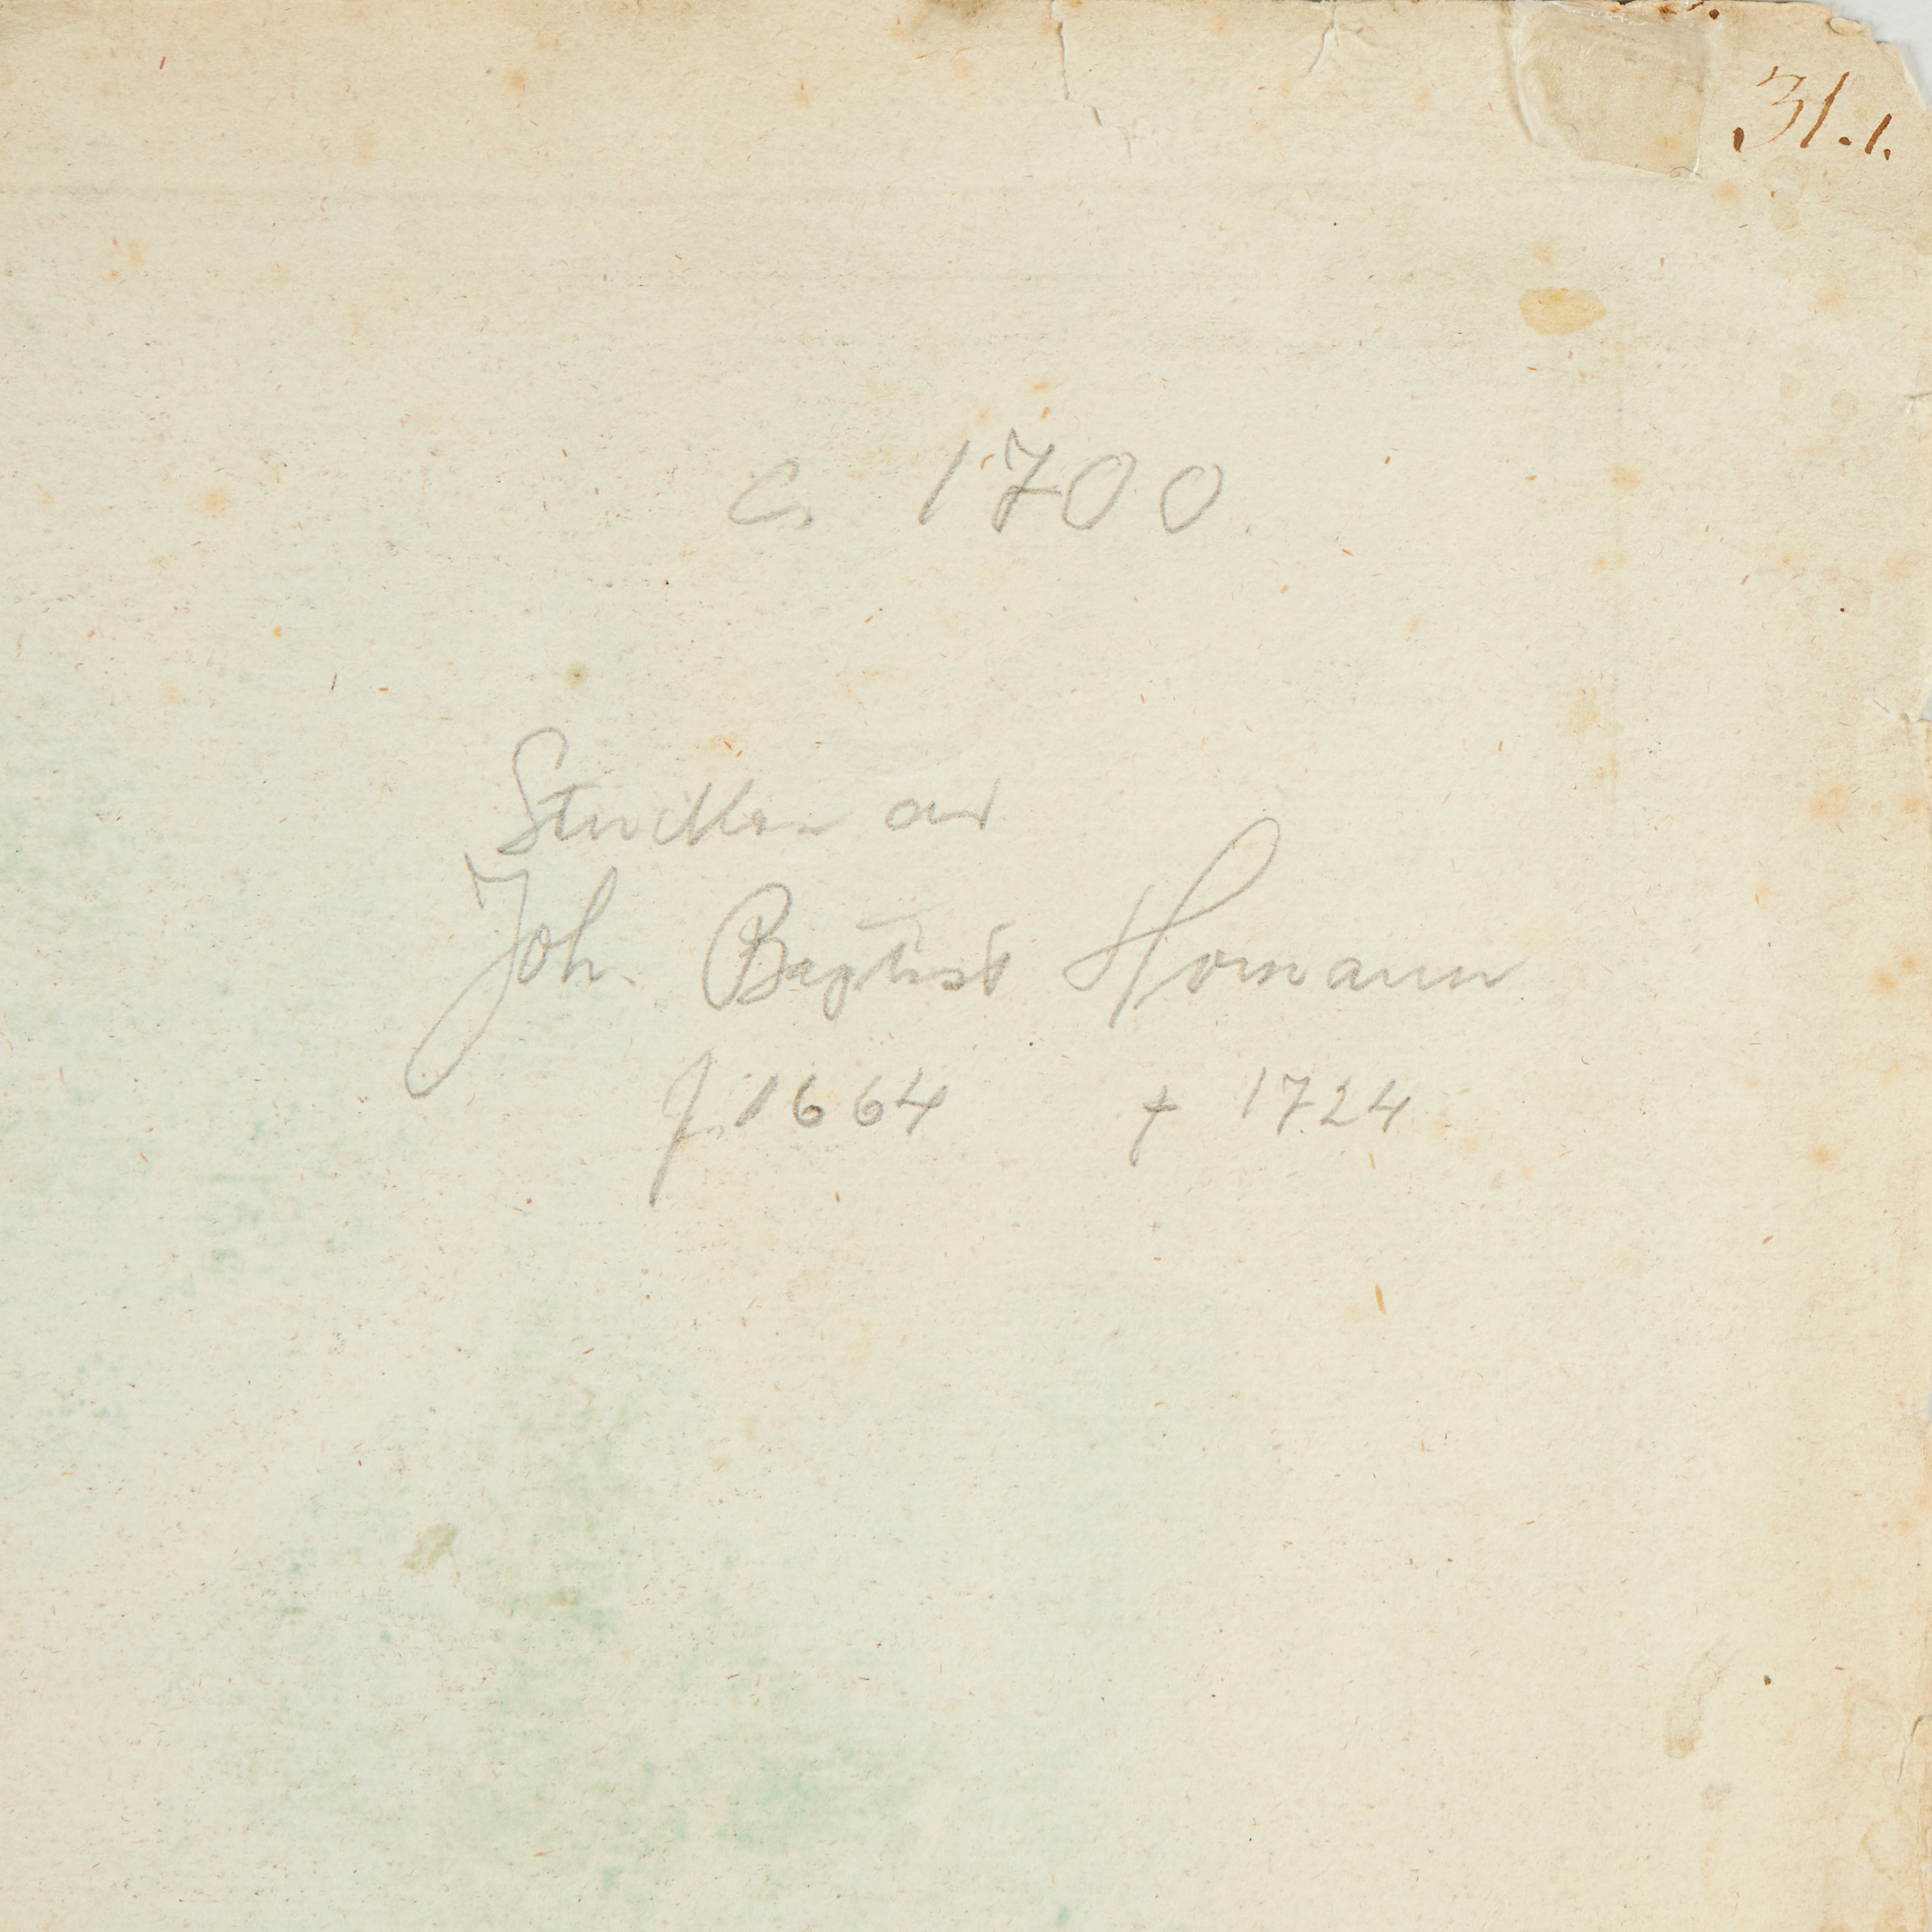 31.1.
c. 1700
Stucken av
Joh. Baptist Homann
f. 1664 † 1724